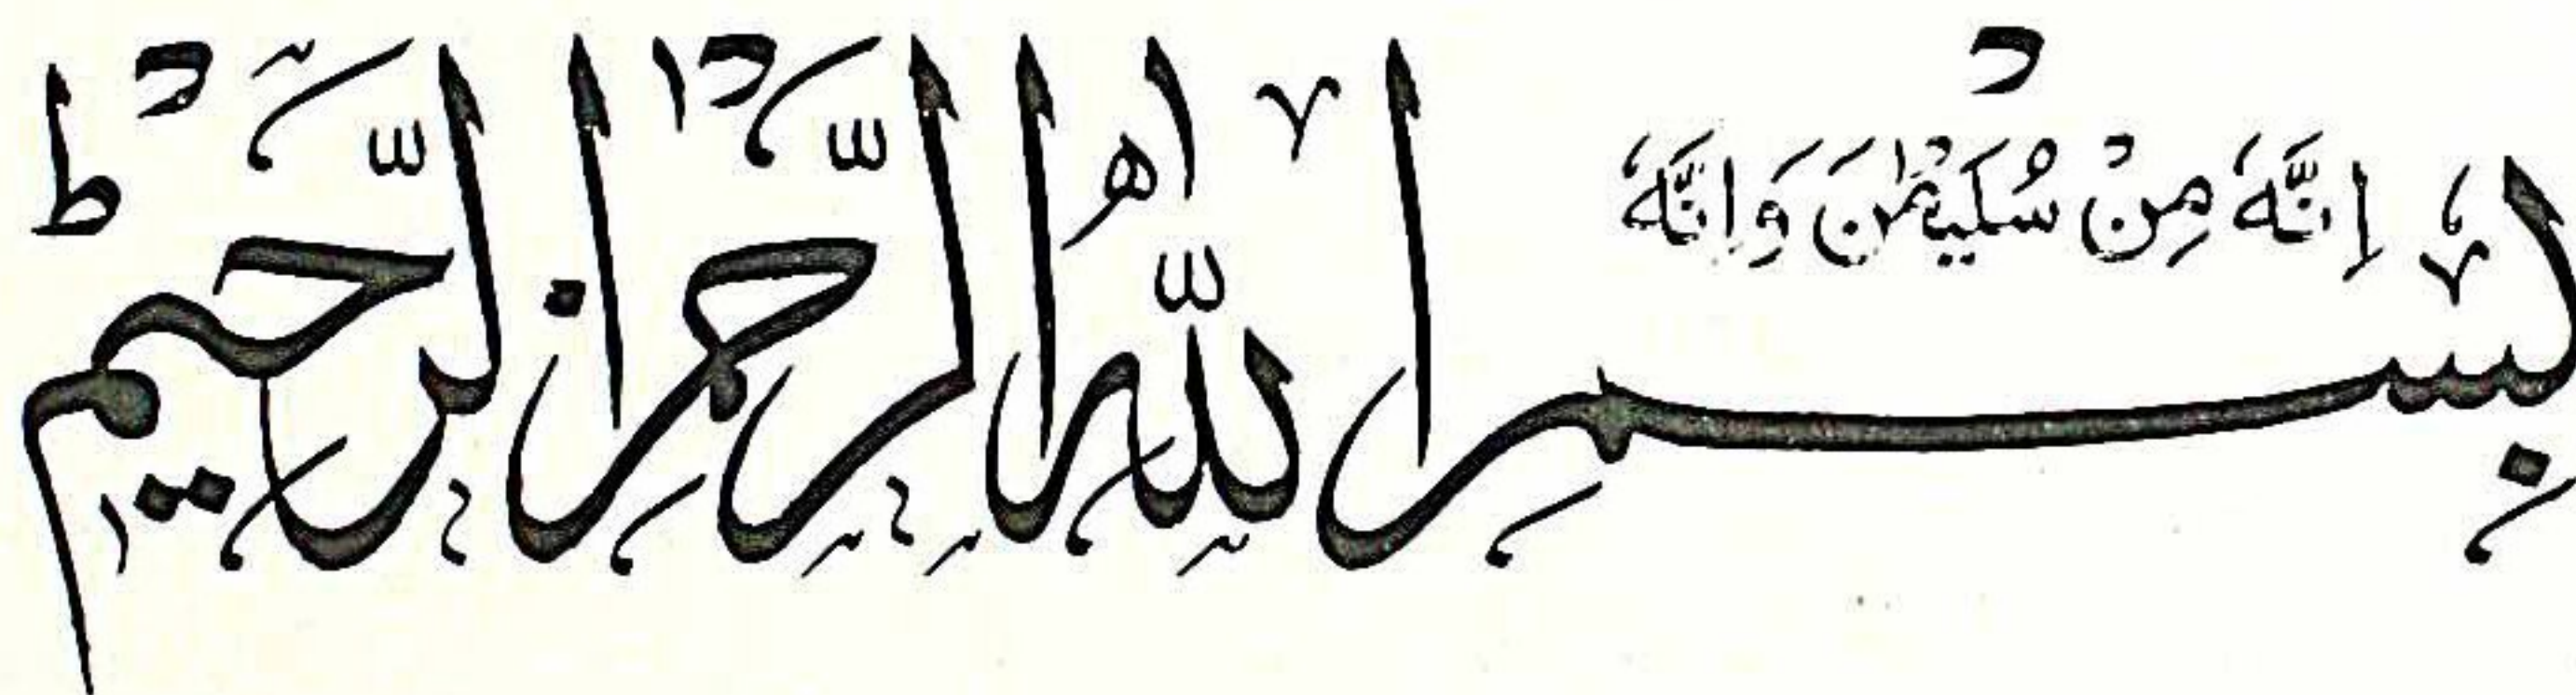 اِنَّهُ مِنْ سُلَيْمٰنَ وَاِنَّهُ
بِسْمِ اللّٰهِ الرَّحْمٰنِ الرَّحِيْمِ ط